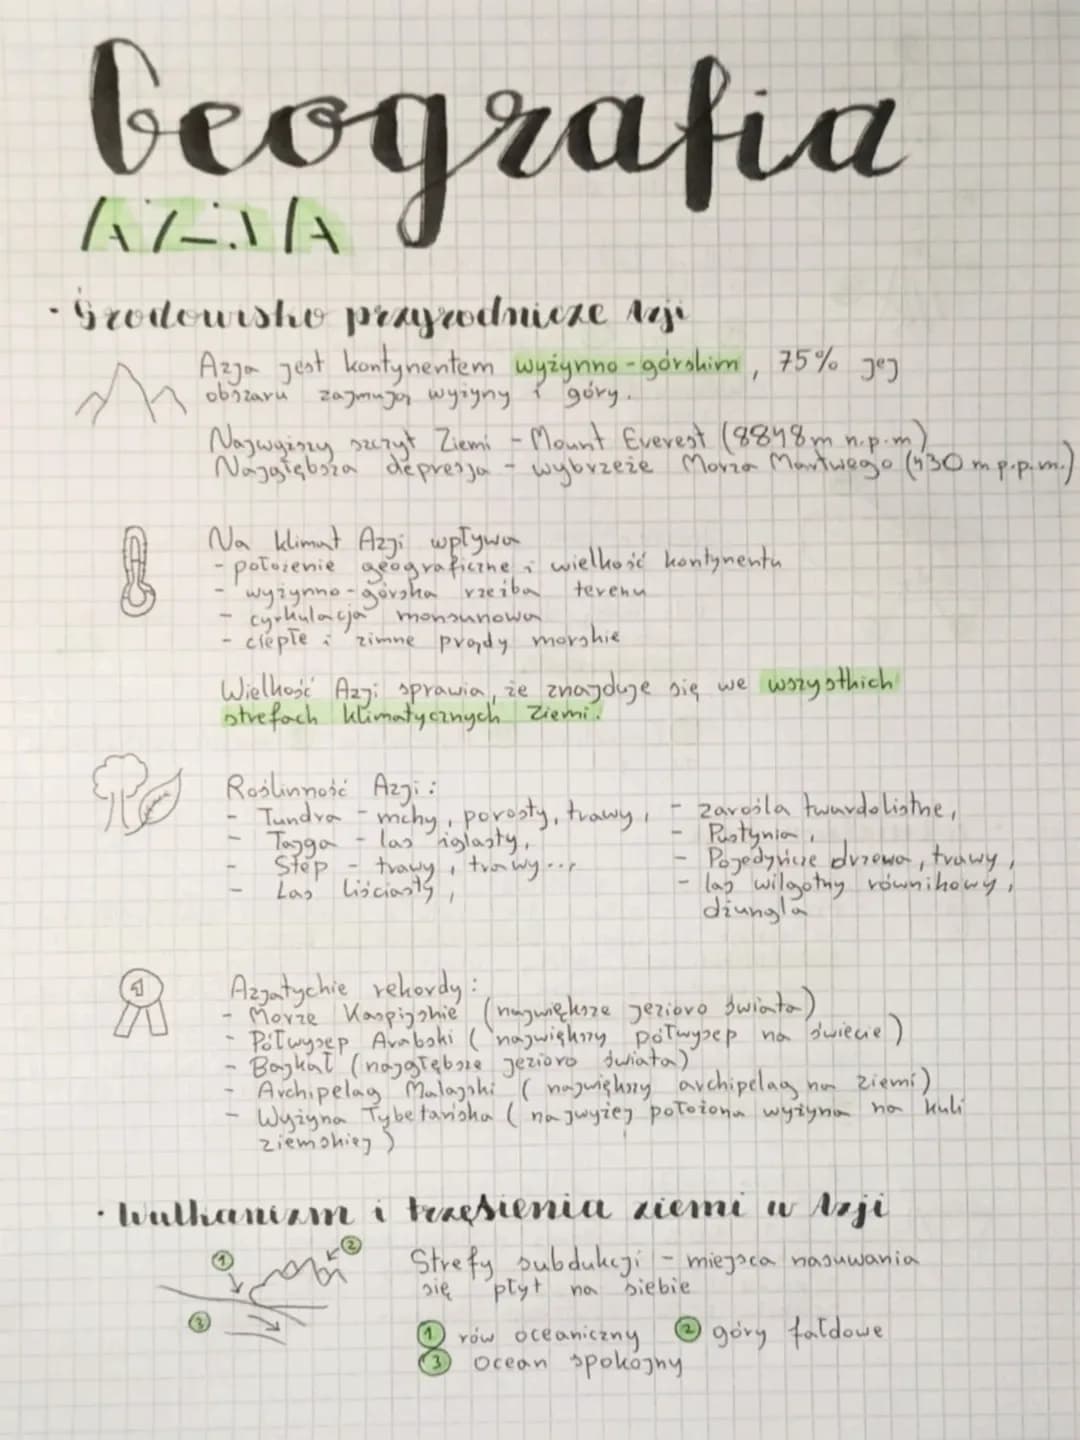 Geografia
AZJA
· Środowisko przyrodnicze Azji
Azja jest kontynentem wyżynno-górskim, 75% jej
obszaru zajmują wyżyny i góry.
Najwyższy szczyt Ziemi - Mount Everest (8848 m n.p.m)
Najgłębsza depresja - wybrzeże Morza Martwego (430 m p.p.m.)
Na klimat Azji wpływa
- położenie geograficzne i wielkość kontynentu
- wyżynno-górska rzeźba terenu
- cyrkulacja monsunowa
- ciepłe i zimne prądy morskie
Wielkość Azji sprawia, że znajduje się we wszystkich
strefach klimatycznych Ziemi.
Roślinność Azji:
- Tundra - mchy, porosty, trawy,
- Tajga - las iglasty,
- Step - trawy, trawy...,
- Las liściasty,
- zarośla twardolistne,
- Pustynia,
- Pojedyńcze drzewa, trawy,
- las wilgotny równikowy,
dżungla
1
Azjatyckie rekordy:
- Morze Kaspijskie (największe jezioro świata)
- Półwysep Arabski (największy półwysep na świecie)
- Bajkał (najgłębsze jezioro świata)
- Archipelag Malajski (największy archipelag na ziemi)
- Wyżyna Tybetańska (najwyżej położona wyżyna na kuli
ziemskiej)
· Wulkanizm i trzęsienia ziemi w Azji
1
2
3
Strefy subdukcji - miejsca nasuwania
się płyt na siebie
1 rów oceaniczny 2 góry fałdowe
3 ocean spokojny